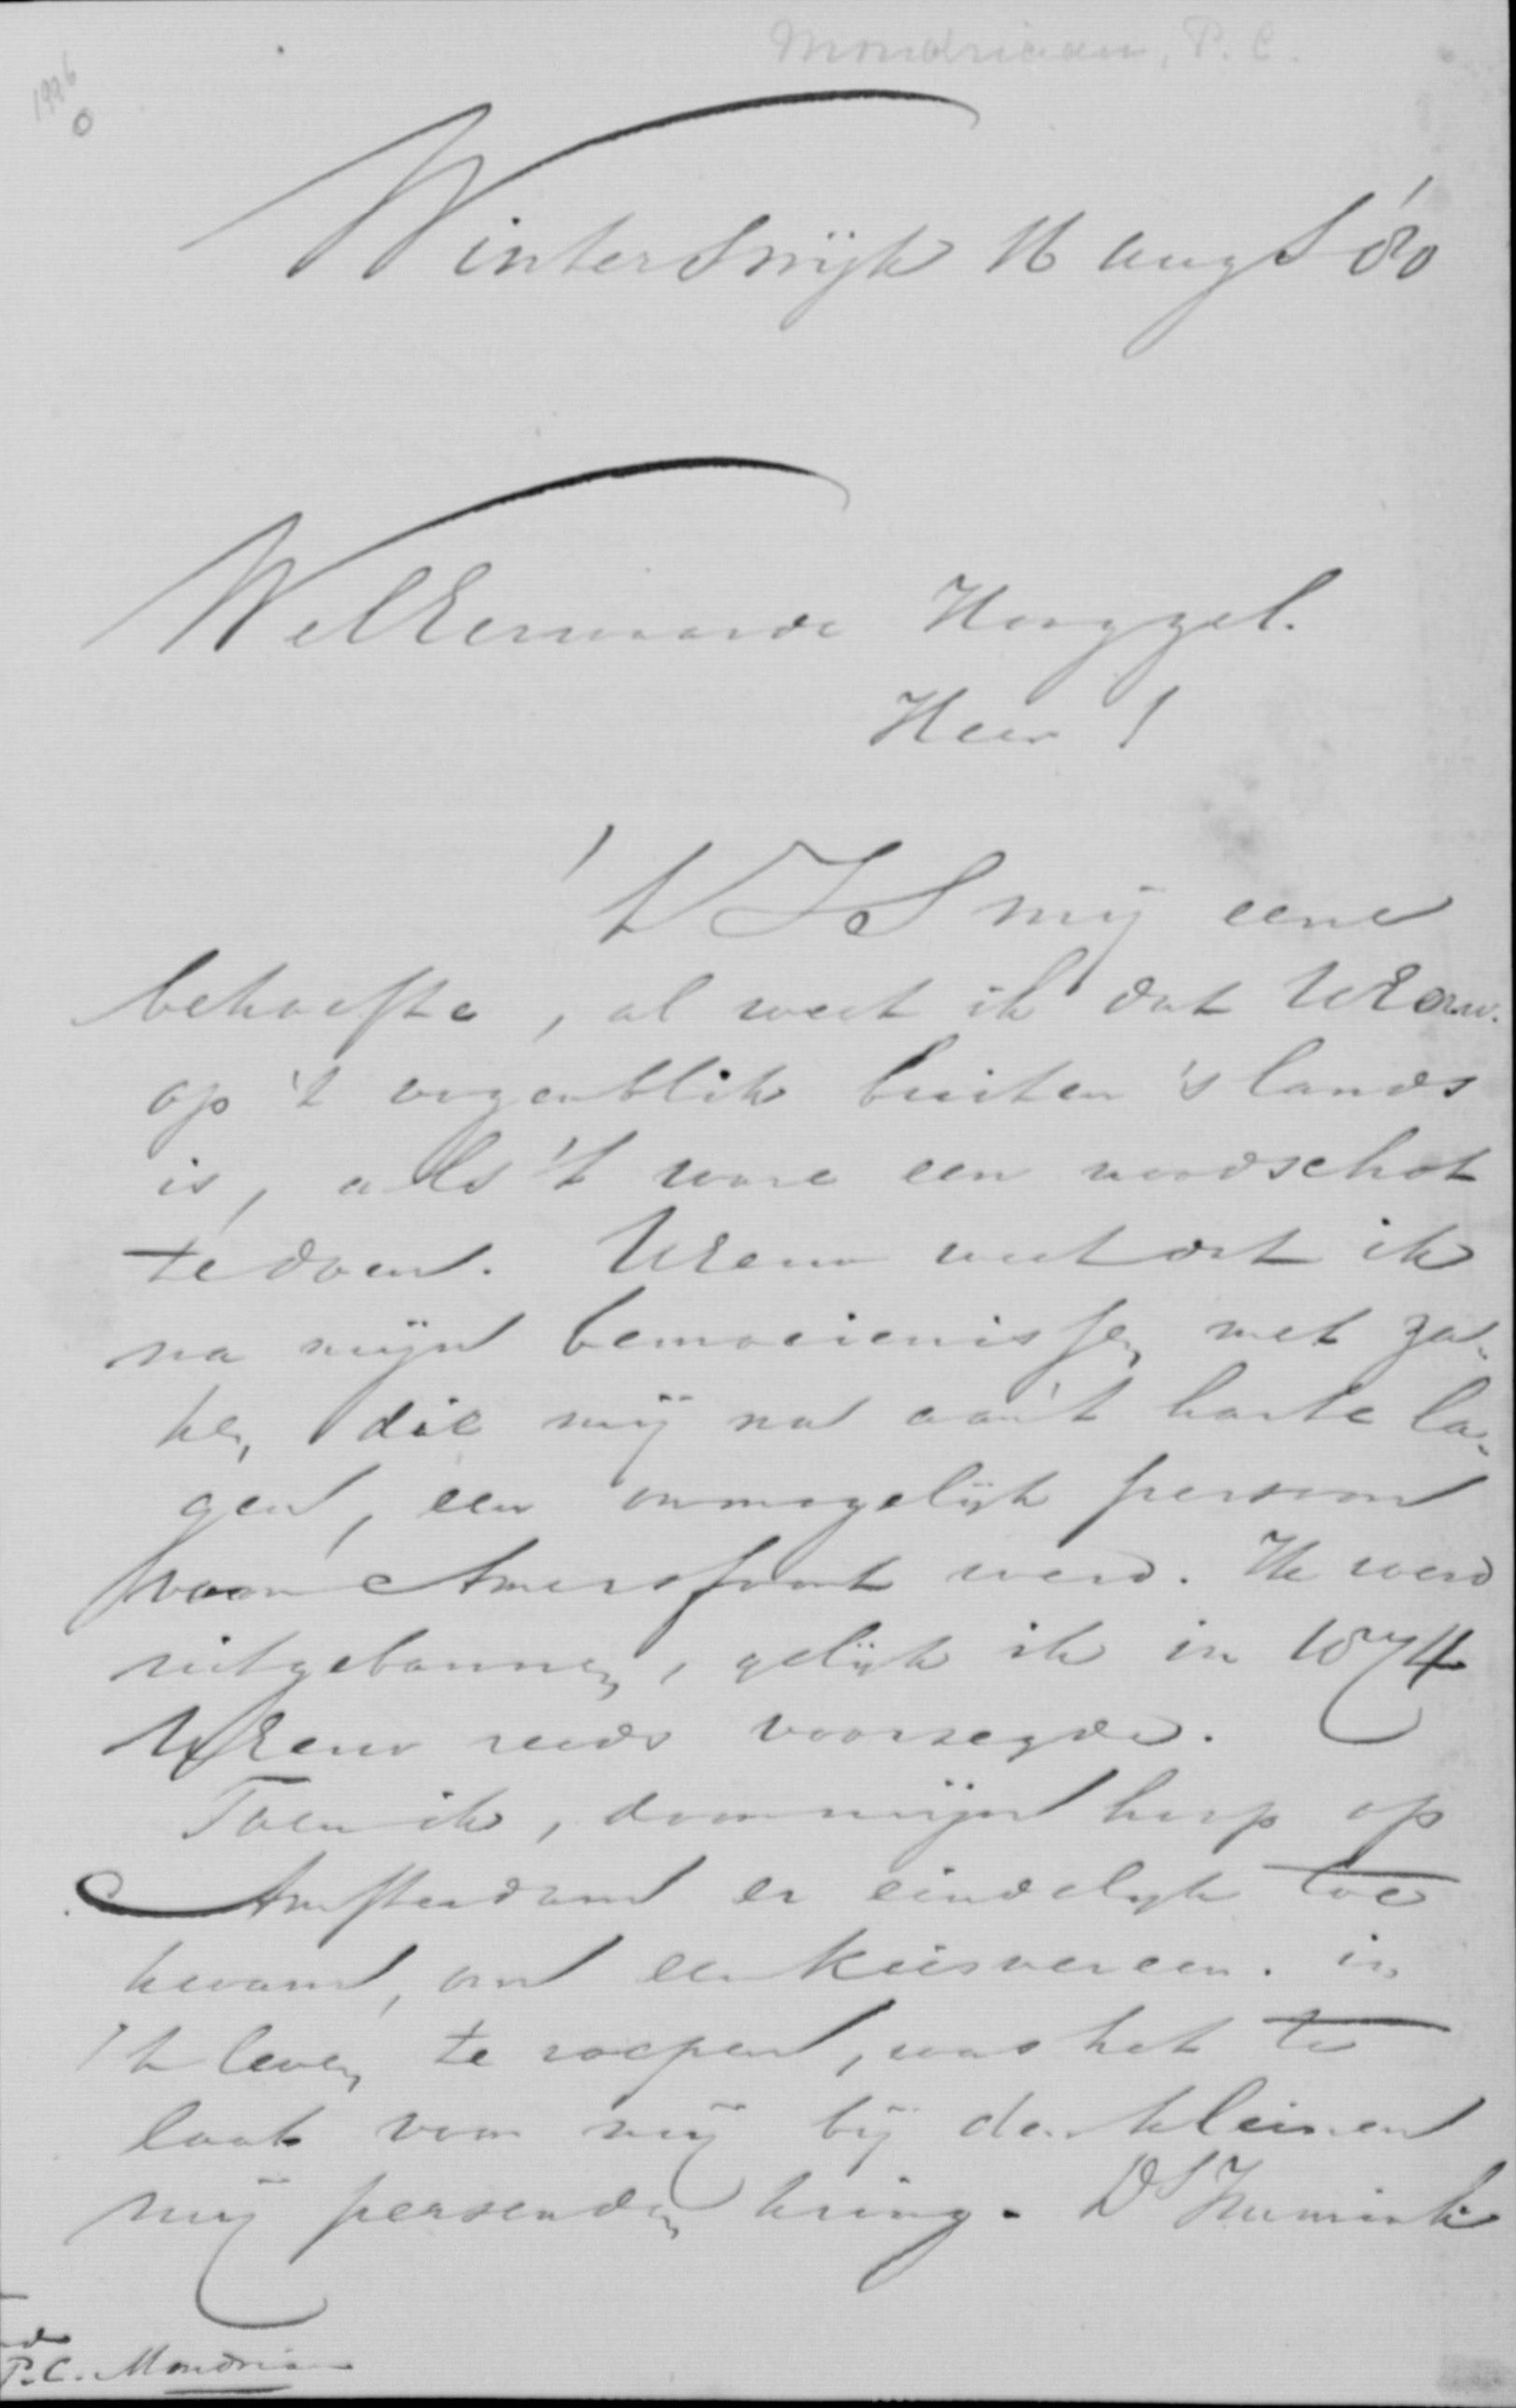 Mondriaan, P. C.
1996
0
Winterswijk 16 Augs '80
WelEerwaarde Hooggel.
Heer!
't Is mij eene
behoefte, al weet ik dat UEerw.
op 't oogenblik buiten 's lands
is, als 't ware een noodschot
te doen. UEerw weet dat ik
na mijn bemoeienissen met za-
ken, die mij na aan 't harte la-
gen, een onmogelijk persoon
voor Amersfoort werd. Ik werd
uitgebannen, gelijk ik in 1874
UEerw reeds voorzegde.
Toen ik, door mijn hoop op
Amsterdam er eindelijk toe
kwam, om een kiesvereen. in
't leven te roepen, was het te
laat voor mij bij den kleinen
mij persenden kring. Ds
P. C. Mondriaan